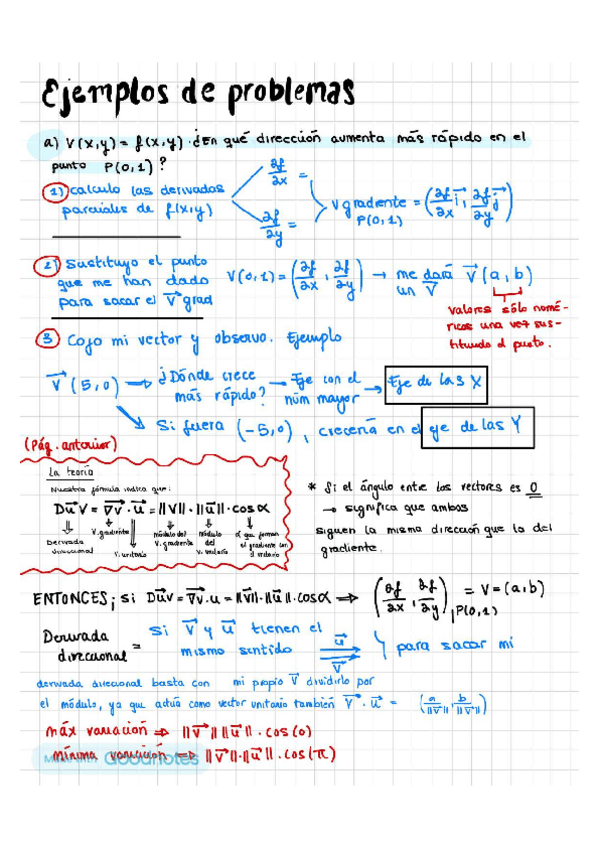 Ejemplos de problemas
a) V(x,y) = f(x,y) · ¿En qué dirección aumenta más rápido en el
punto P(0,1)?
1) Calculo las derivadas
parciales de f(x,y)
∂f/∂x =
∂f/∂y =
∇gradiente = (∂f/∂x i⃗, ∂f/∂y j⃗)
P(0,1)
2) Sustituyo el punto
que me han dado
para sacar el V⃗ grad
V(0,1) = (∂f/∂x, ∂f/∂y) → me dará V⃗(a,b)
un V⃗
valores sólo numé-
ricos una vez sus-
tituido el punto.
3 Cojo mi vector y observo. Ejemplo
V⃗(5,0) → ¿Dónde crece
más rápido? → Eje con el
núm mayor → Eje de las X
Si fuera (-5,0), crecería en el eje de las Y
(Pág. anterior)
La teoría
Nuestra fórmula indica que:
Du⃗V = ∇⃗v · u⃗ = ||V|| · ||u⃗|| · cos α
Derivada
direccional
V. gradiente
V. unitario
módulo del
V. gradiente
módulo
del
V. unitario
α que forman
el gradiente con
el unitario
* Si el ángulo entre los vectores es 0
→ significa que ambos
siguen la misma dirección que la del
gradiente.
ENTONCES; Si Du⃗v = ∇⃗v · u = ||V⃗|| · ||u⃗|| · cos α ⇒ (∂f/∂x, ∂f/∂y) P(0,1) = V = (a,b)
Derivada
direccional =
Si V⃗ y u⃗ tienen el
mismo sentido
u⃗
V⃗
Y para sacar mi
derivada direccional basta con mi propio V⃗ dividirlo por
el módulo, ya que actúa como vector unitario también V⃗ · u⃗ = (a/||V⃗||, b/||V⃗||)
máx variación ⇒ ||V⃗|| ||u⃗|| · cos(0)
mínima variación ⇒ ||V⃗|| · ||u⃗|| · cos(π)
Made with Goodnotes